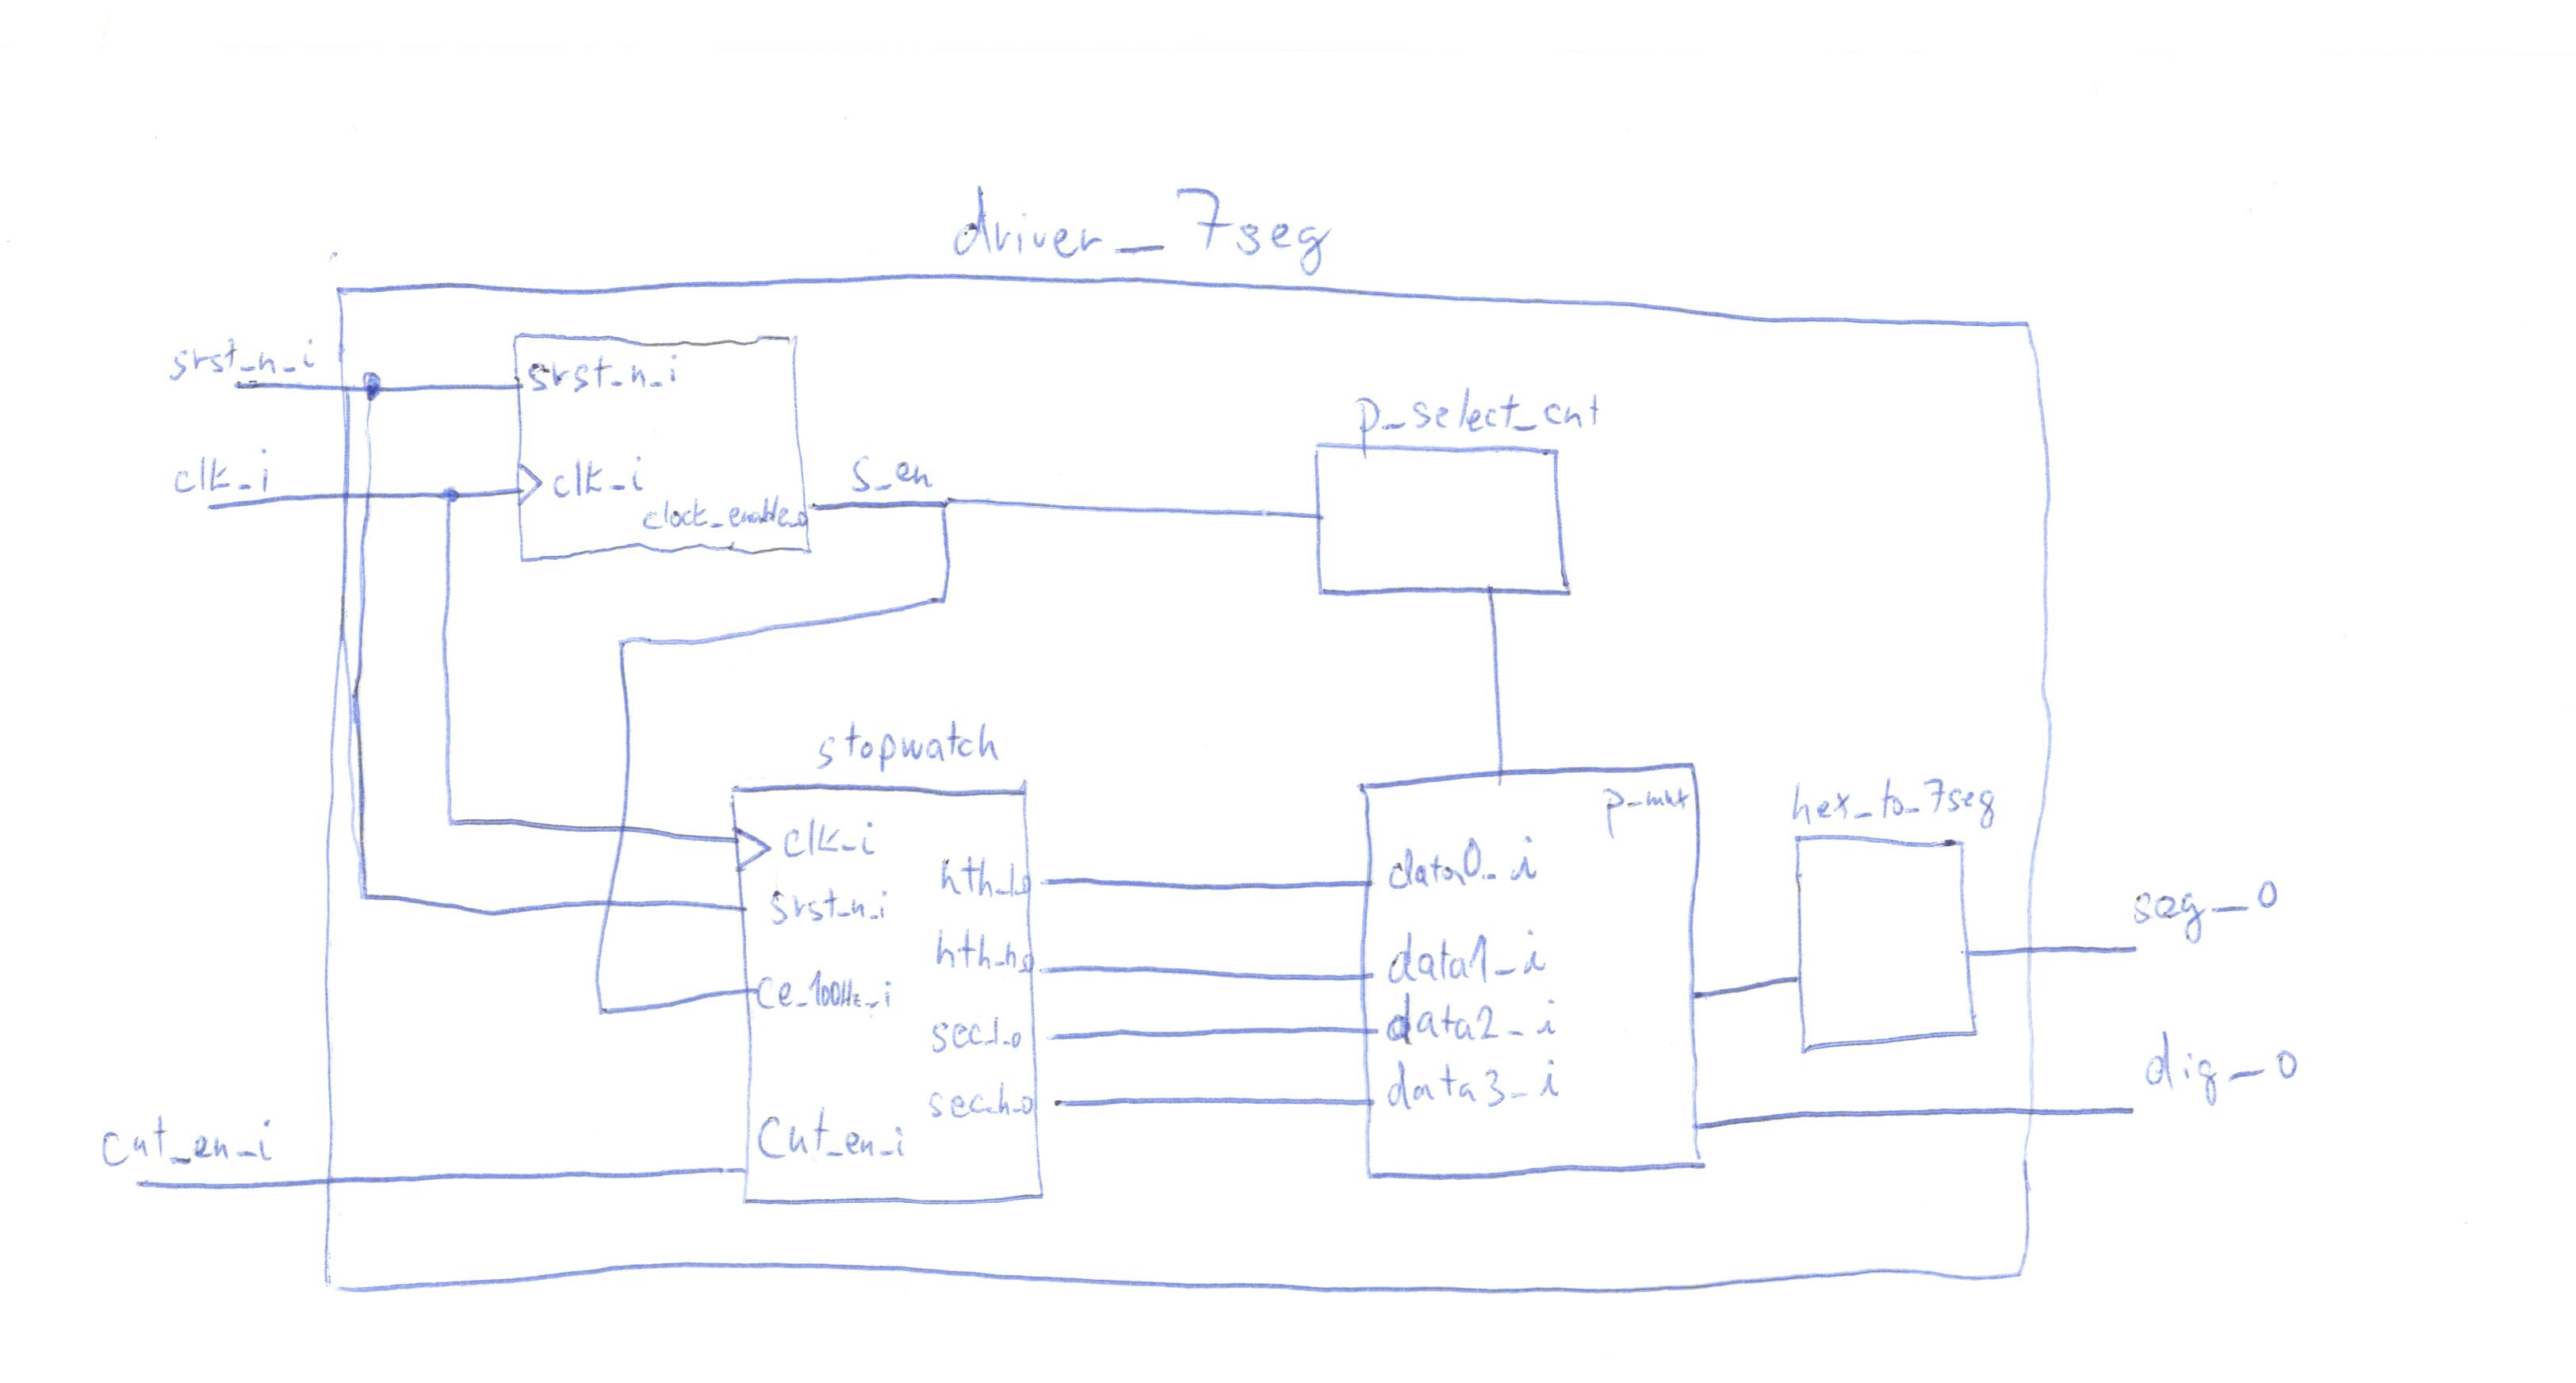 driver_7seg
srst_n_i
srst_n_i
clk_i
clk_i
clock_enable_o
s_en
p_select_cnt
stopwatch
clk_i
srst_n_i
ce_100Hz_i
cnt_en_i
hth_l_o
hth_h_o
sec_l_o
sec_h_o
p_mux
data0_i
data1_i
data2_i
data3_i
hex_to_7seg
seg_o
dig_o
cnt_en_i